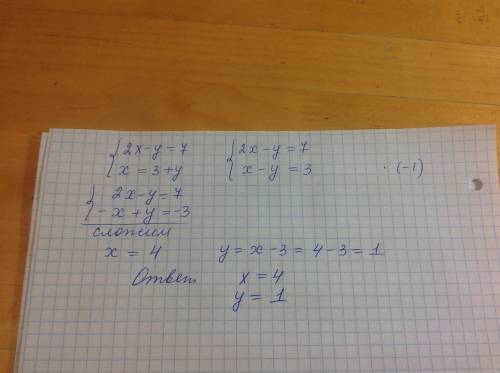 2x-y=7    2x-y=7
x=3+y    x-y=3    ·(-1)
2x-y=7
-x+y=-3
сложим
x=4    y=x-3=4-3=1
Ответ    x=4
y=1